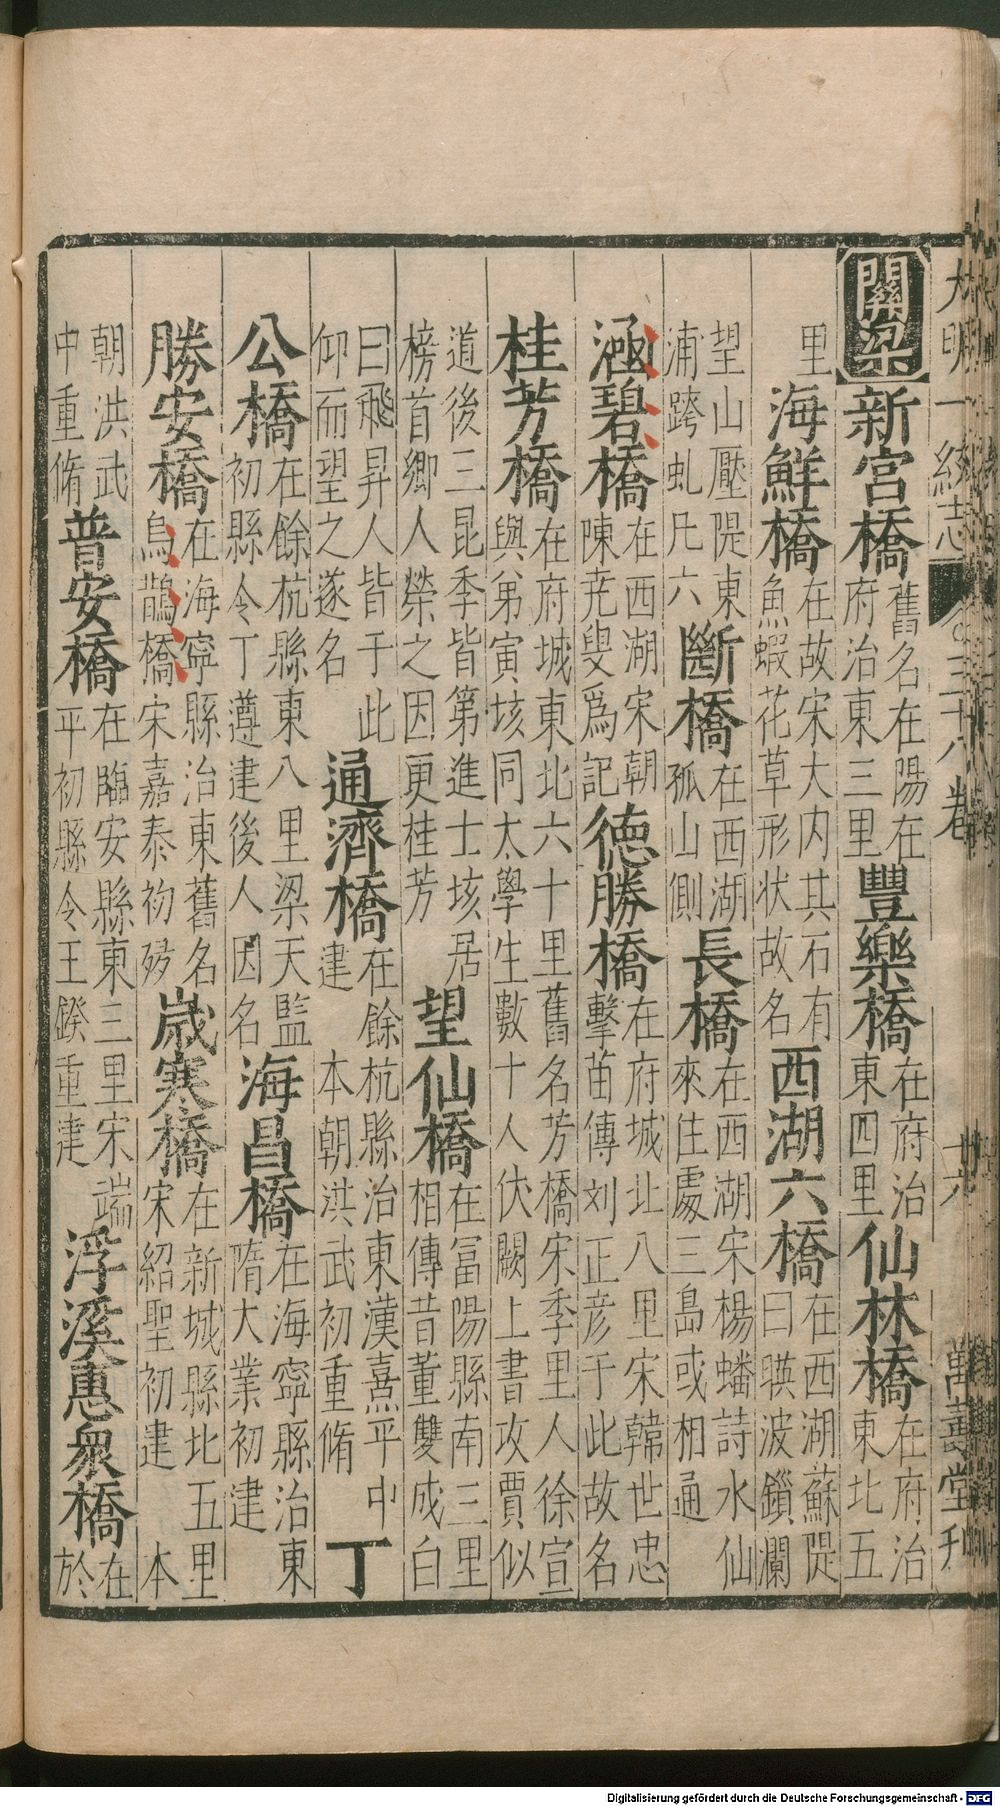 大明一統志 卷三十八 廿六 萬壽堂刊
關梁 新宮橋 舊名在陽在府治東三里 豐樂橋 在府治東四里 仙林橋 在府治東北五
里 海鮮橋 在故宋大内其石有魚蝦花草形状故名 西湖六橋 在西湖蘇隄曰暎波鎻瀾
望山壓隄東浦跨虬凡六 斷橋 在西湖孤山側 長橋 在西湖宋楊蟠詩水仙來住處三島或相通
涵碧橋 在西湖宋朝陳尭叟爲記 德勝橋 在府城北八里宋韓世忠擊苗傳刘正彦于此故名
桂芳橋 在府城東北六十里舊名芳橋宋季里人徐宣與弟寅垓同太學生數十人伏闕上書攻賈似
道後三昆季皆第進士垓居榜首鄉人榮之因更桂芳 望仙橋 在富陽縣南三里相傳昔董雙成白
曰飛昇人皆于此仰而望之遂名 通濟橋 在餘杭縣治東漢熹平中建本朝洪武初重脩 丁
公橋 在餘杭縣東八里梁天監初縣令丁遵建後人因名 海昌橋 在海寧縣治東隋大業初建
勝安橋 在海寧縣治東舊名烏鵲橋宋嘉泰初 歲寒橋 在新城縣北五里宋紹聖初建本
朝洪武中重脩 普安橋 在臨安縣東三里宋端平初縣令王鍨重建 浮溪惠衆橋 在於
Digitalisierung gefördert durch die Deutsche Forschungsgemeinschaft - DFG